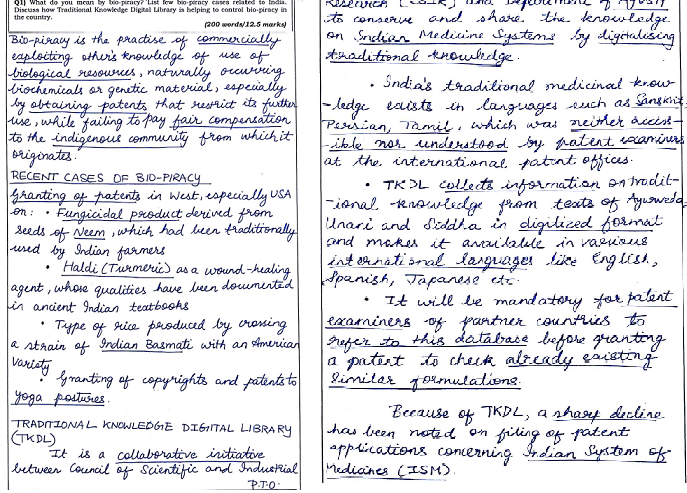 Q1) What do you mean by bio-piracy? List few bio-piracy cases related to India.
Discuss how Traditional Knowledge Digital Library is helping to control bio-piracy in
the country.
(200 words/12.5 marks)
Bio-piracy is the practise of commercially
exploiting other's knowledge of use of
biological resources, naturally occurring
biochemicals or genetic material, especially
by obtaining patents that restrict its further
use, while failing to pay fair compensation
to the indigenous community from which it
originates.
RECENT CASES OF BIO-PIRACY
Granting of patents in West, especially USA
on: • Fungicidal product derived from
seeds of Neem, which had been traditionally
used by Indian farmers
• Haldi (Turmeric) as a wound-healing
agent, whose qualities have been documented
in ancient Indian textbooks
• Type of rice produced by crossing
a strain of Indian Basmati with an American
variety
• Granting of copyrights and patents to
yoga postures.
TRADITIONAL KNOWLEDGE DIGITAL LIBRARY
(TKDL)
It is a collaborative initiative
between Council of Scientific and Industrial
P.T.O.
Research (CSIR) and Department of AYUSH
to conserve and share the knowledge
on Indian Medicine Systems by digitalising
traditional knowledge.
• India's traditional medicinal know-
-ledge exists in languages such as Sanskrit,
Persian, Tamil, which was neither access-
ible nor understood by patent examiners
at the international patent offices.
• TKDL collects information on tradit-
-ional knowledge from texts of Ayurveda,
Unani and Siddha in digitized format
and makes it available in various
international languages like English,
Spanish, Japanese etc.
• It will be mandatory for patent
examiners of partner countries to
refer to this database before granting
a patent to check already existing
similar formulations.
Because of TKDL, a sharp decline
has been noted on filing of patent
applications concerning Indian System of
Medicines (ISM).